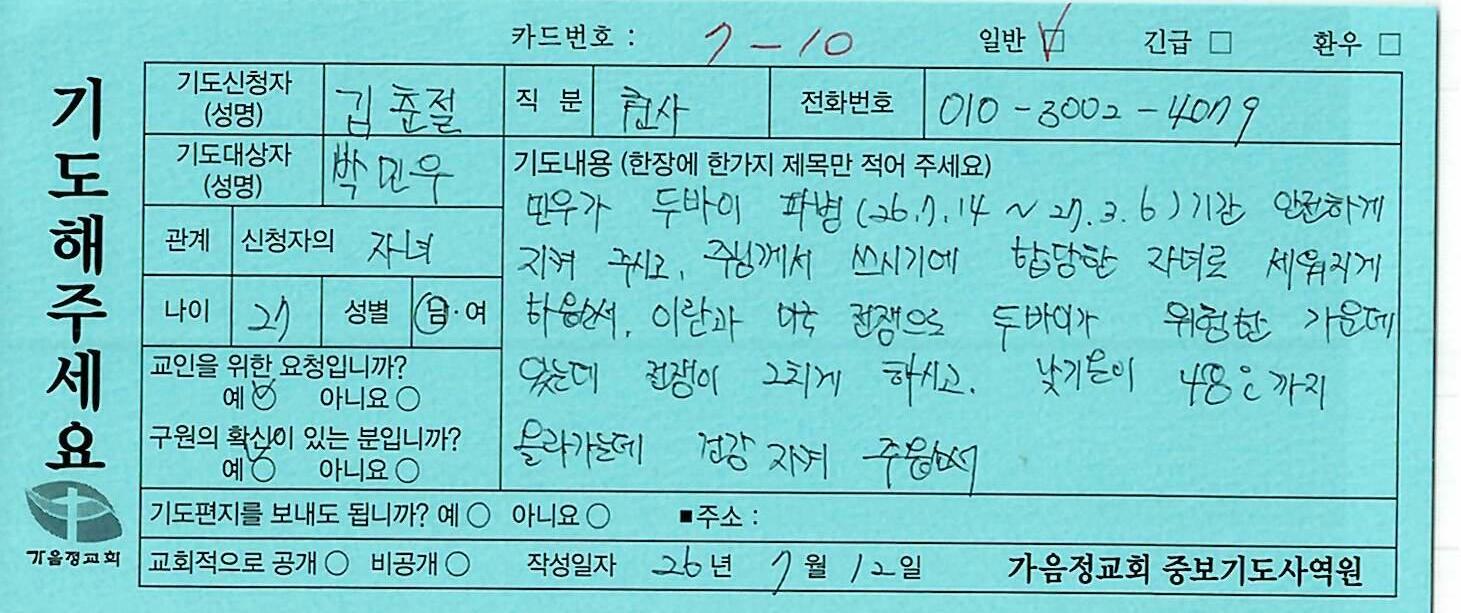 카드번호 : 7-10 일반 ☑ 긴급 □ 환우 □
기도해주세요
기도신청자 (성명) 김춘절 직 분 권사 전화번호 010-3002-4079
기도대상자 (성명) 박민우
관계 신청자의 자녀
나이 27 성별 남·여
교인을 위한 요청입니까?
예 ○ 아니요 ○
구원의 확신이 있는 분입니까?
예 ○ 아니요 ○
기도내용 (한장에 한가지 제목만 적어 주세요)
민우가 두바이 파병(26.7.14 ~ 27.3.6)기간 안전하게
지켜 주시고, 주님께서 쓰시기에 합당한 자녀로 세워지게
하옵소서, 이란과 미국 전쟁으로 두바이가 위험한 가운데
있는데 전쟁이 그치게 하시고, 낮기온이 48℃까지
올라가는데 건강 지켜 주옵소서
기도편지를 보내도 됩니까? 예 ○ 아니요 ○ ■주소 :
교회적으로 공개 ○ 비공개 ○ 작성일자 26년 7월 12일 가음정교회 중보기도사역원
가음정교회